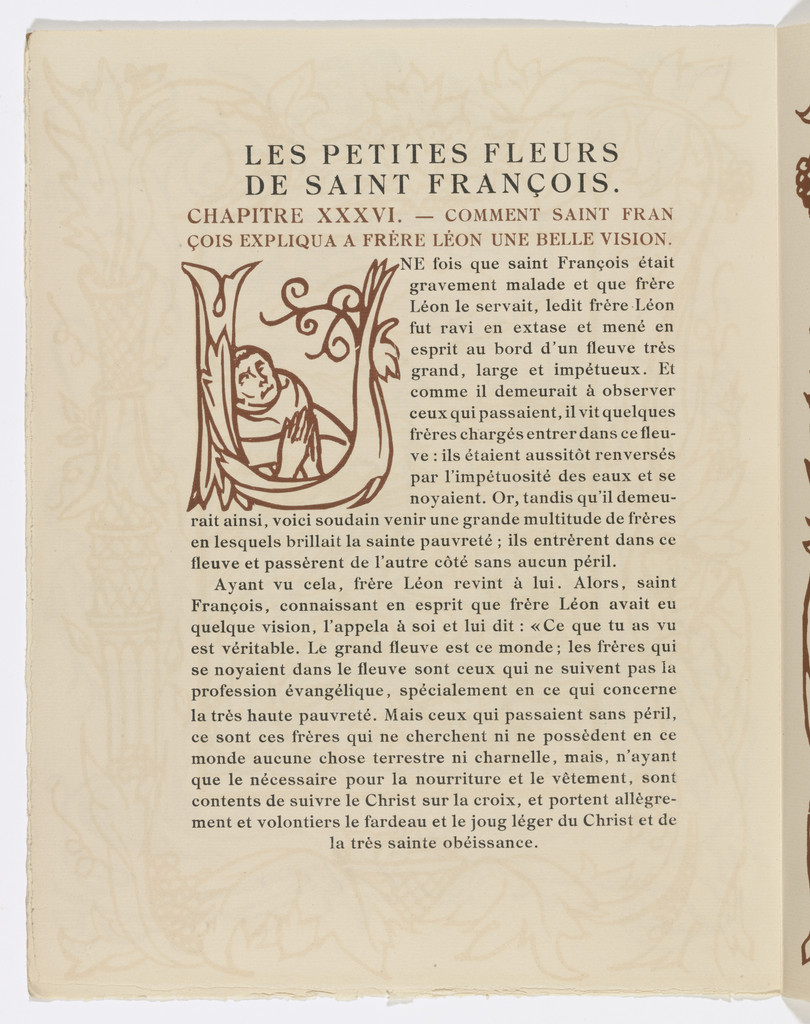 LES PETITES FLEURS
DE SAINT FRANÇOIS.
CHAPITRE XXXVI. — COMMENT SAINT FRAN
ÇOIS EXPLIQUA A FRÈRE LÉON UNE BELLE VISION.
UNE fois que saint François était
gravement malade et que frère
Léon le servait, ledit frère Léon
fut ravi en extase et mené en
esprit au bord d'un fleuve très
grand, large et impétueux. Et
comme il demeurait à observer
ceux qui passaient, il vit quelques
frères chargés entrer dans ce fleu-
ve : ils étaient aussitôt renversés
par l'impétuosité des eaux et se
noyaient. Or, tandis qu'il demeu-
rait ainsi, voici soudain venir une grande multitude de frères
en lesquels brillait la sainte pauvreté ; ils entrèrent dans ce
fleuve et passèrent de l'autre côté sans aucun péril.
Ayant vu cela, frère Léon revint à lui. Alors, saint
François, connaissant en esprit que frère Léon avait eu
quelque vision, l'appela à soi et lui dit : «Ce que tu as vu
est véritable. Le grand fleuve est ce monde; les frères qui
se noyaient dans le fleuve sont ceux qui ne suivent pas la
profession évangélique, spécialement en ce qui concerne
la très haute pauvreté. Mais ceux qui passaient sans péril,
ce sont ces frères qui ne cherchent ni ne possèdent en ce
monde aucune chose terrestre ni charnelle, mais, n'ayant
que le nécessaire pour la nourriture et le vêtement, sont
contents de suivre le Christ sur la croix, et portent allègre-
ment et volontiers le fardeau et le joug léger du Christ et de
la très sainte obéissance.